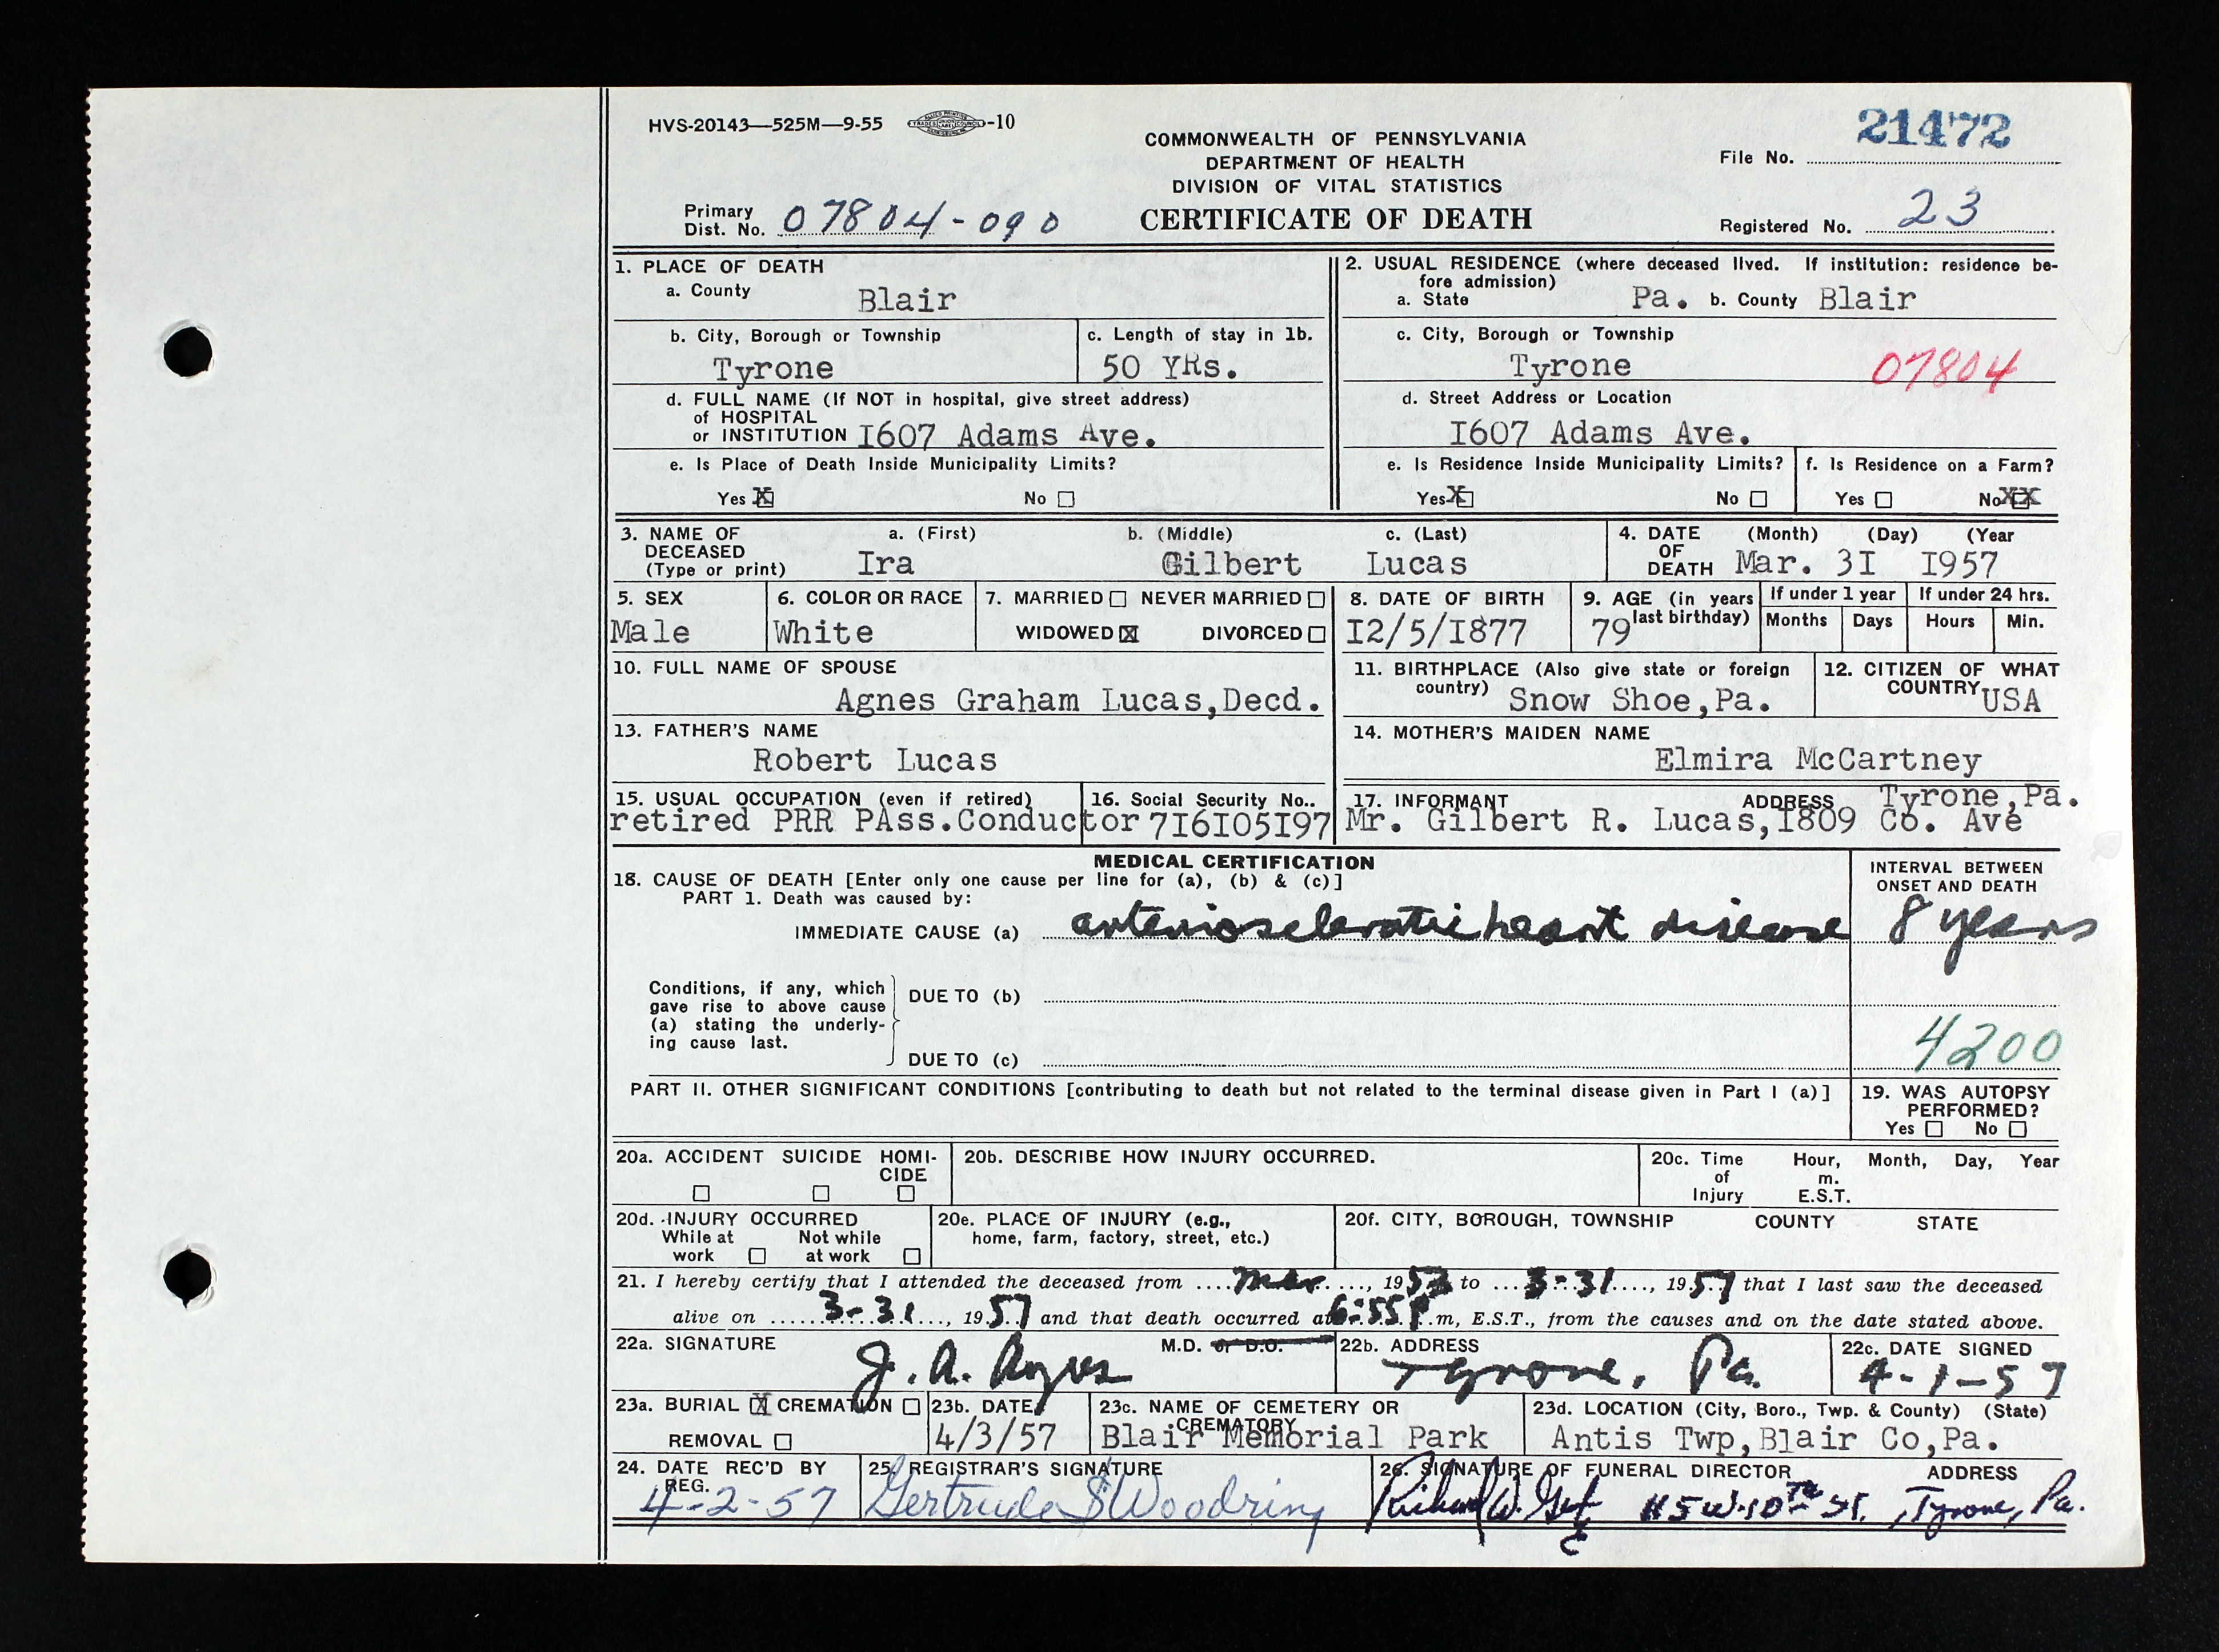 HVS-20143—525M—9-55 -10
COMMONWEALTH OF PENNSYLVANIA
DEPARTMENT OF HEALTH
DIVISION OF VITAL STATISTICS
CERTIFICATE OF DEATH
21472
File No.
Primary
Dist. No. 07804-090
Registered No. 23
1. PLACE OF DEATH
a. County Blair
2. USUAL RESIDENCE (where deceased lived. If institution: residence be-
fore admission)
a. State Pa. b. County Blair
b. City, Borough or Township
Tyrone
c. Length of stay in 1b.
50 YRs.
c. City, Borough or Township
Tyrone 07804
d. FULL NAME (If NOT in hospital, give street address)
of HOSPITAL
or INSTITUTION I607 Adams Ave.
d. Street Address or Location
I607 Adams Ave.
e. Is Place of Death Inside Municipality Limits?
Yes X No
e. Is Residence Inside Municipality Limits?
Yes X No
f. Is Residence on a Farm?
Yes No XX
3. NAME OF
DECEASED
(Type or print)
a. (First) b. (Middle) c. (Last)
Ira Gilbert Lucas
4. DATE
OF
DEATH
(Month) (Day) (Year
Mar. 3I I957
5. SEX
Male
6. COLOR OR RACE
White
7. MARRIED NEVER MARRIED
WIDOWED X DIVORCED
8. DATE OF BIRTH
I2/5/I877
9. AGE (in years
last birthday)
79
If under 1 year
Months Days
If under 24 hrs.
Hours Min.
10. FULL NAME OF SPOUSE
Agnes Graham Lucas,Decd.
11. BIRTHPLACE (Also give state or foreign
country) Snow Shoe,Pa.
12. CITIZEN OF WHAT
COUNTRY USA
13. FATHER'S NAME
Robert Lucas
14. MOTHER'S MAIDEN NAME
Elmira McCartney
15. USUAL OCCUPATION (even if retired)
retired PRR PAss.Conductor
16. Social Security No..
7I6I05I97
17. INFORMANT ADDRESS Tyrone,Pa.
Mr. Gilbert R. Lucas,I809 Co. Ave
MEDICAL CERTIFICATION
18. CAUSE OF DEATH [Enter only one cause per line for (a), (b) & (c)]
PART 1. Death was caused by:
IMMEDIATE CAUSE (a) arteriosclerotic heart disease
INTERVAL BETWEEN
ONSET AND DEATH
8 years
Conditions, if any, which
gave rise to above cause
(a) stating the underly-
ing cause last.
DUE TO (b)
DUE TO (c)
4200
PART II. OTHER SIGNIFICANT CONDITIONS [contributing to death but not related to the terminal disease given in Part I (a)]
19. WAS AUTOPSY
PERFORMED?
Yes No
20a. ACCIDENT SUICIDE HOMI-
CIDE
20b. DESCRIBE HOW INJURY OCCURRED.
20c. Time
of
Injury
Hour, Month, Day, Year
m.
E.S.T.
20d. INJURY OCCURRED
While at Not while
work at work
20e. PLACE OF INJURY (e.g.,
home, farm, factory, street, etc.)
20f. CITY, BOROUGH, TOWNSHIP COUNTY STATE
21. I hereby certify that I attended the deceased from Mar, 1953 to 3-31, 1957 that I last saw the deceased
alive on 3-31, 1957 and that death occurred at 6:55 P.m, E.S.T., from the causes and on the date stated above.
22a. SIGNATURE M.D. or D.O.
J. A.
22b. ADDRESS
Tyrone, Pa.
22c. DATE SIGNED
4-1-57
23a. BURIAL X CREMATION
REMOVAL
23b. DATE
4/3/57
23c. NAME OF CEMETERY OR
CREMATORY
Blair Memorial Park
23d. LOCATION (City, Boro., Twp. & County) (State)
Antis Twp,Blair Co,Pa.
24. DATE REC'D BY
REG.
4-2-57
25. REGISTRAR'S SIGNATURE
Gertrude S Woodring
26. SIGNATURE OF FUNERAL DIRECTOR ADDRESS
Richard W. W. 10th St., Tyrone, Pa.